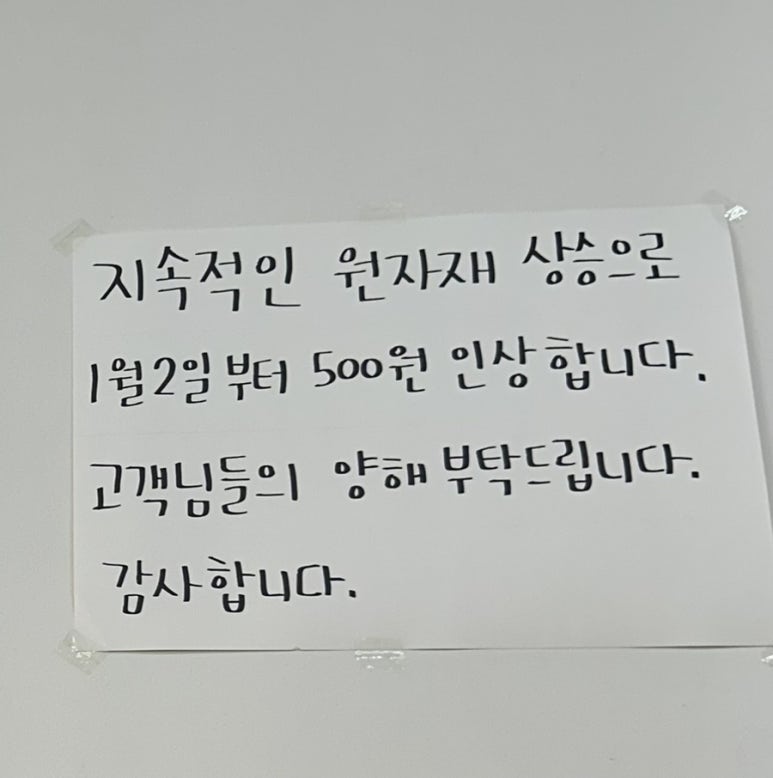 지속적인 원자재 상승으로
1월2일부터 500원 인상합니다.
고객님들의 양해 부탁드립니다.
감사합니다.